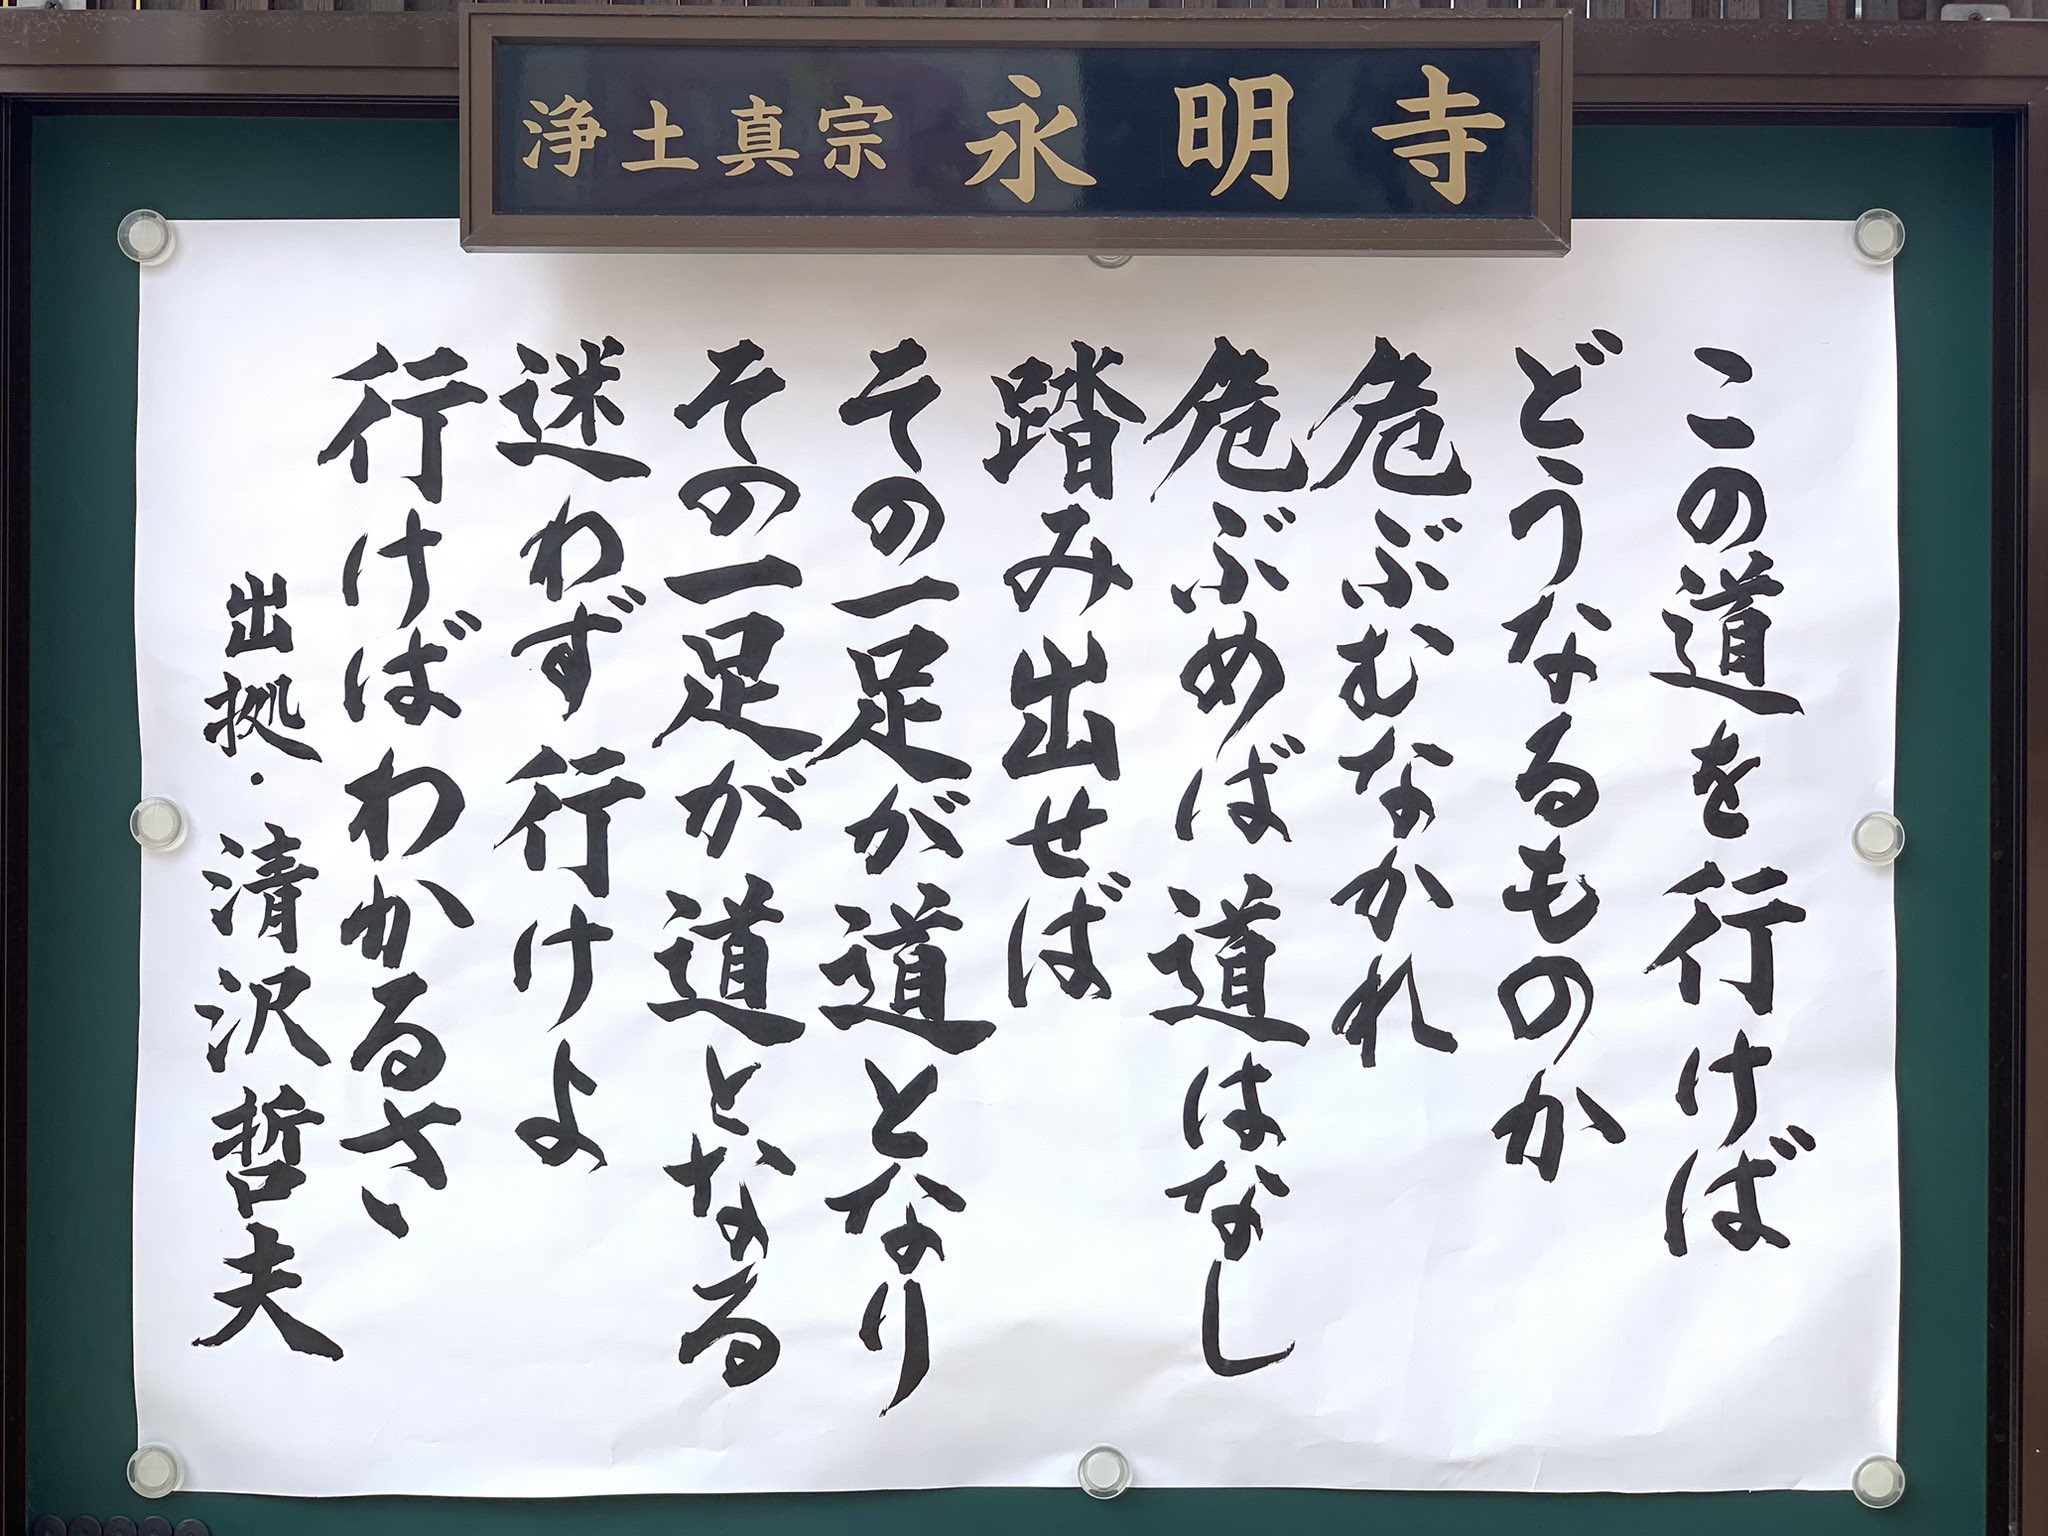 浄土真宗 永明寺
この道を行けば
どうなるものか
危ぶむなかれ
危ぶめば道はなし
踏み出せば
その一足が道となり
その一足が道となる
迷わず行けよ
行けばわかるさ
出拠・清沢哲夫